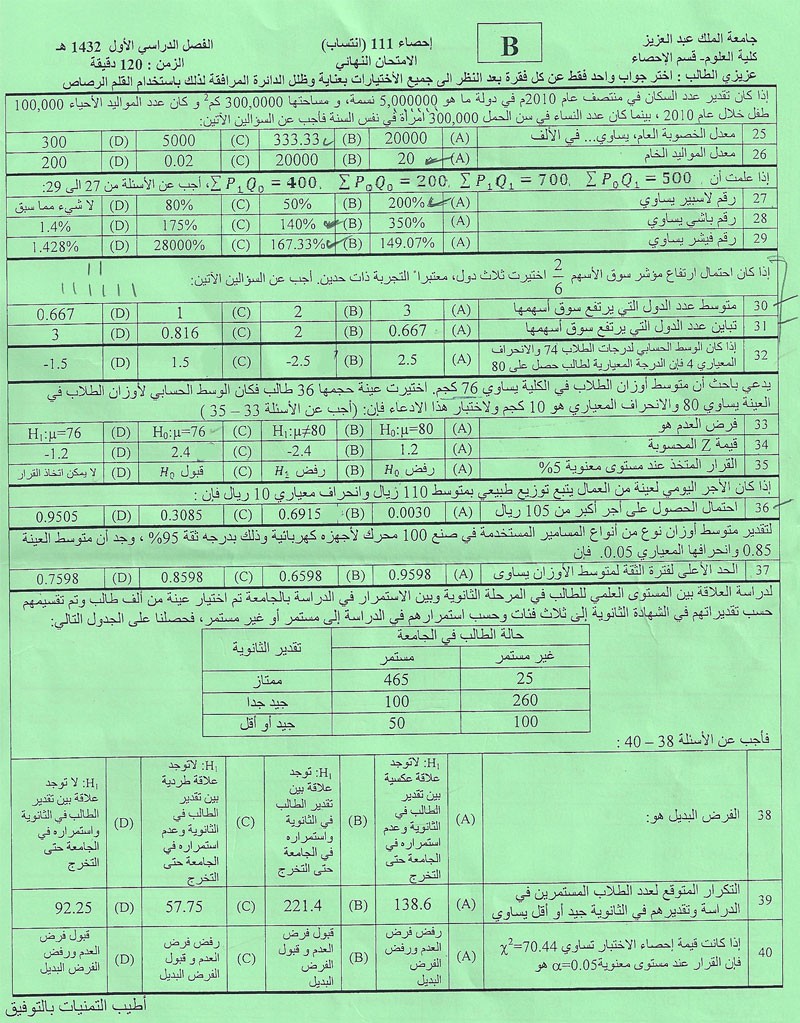 جامعة الملك عبد العزيز
كلية العلوم- قسم الإحصاء
B
إحصاء 111 (انتساب)
الامتحان النهائي
الفصل الدراسي الأول 1432 هـ
الزمن: 120 دقيقة
عزيزي الطالب : اختر جواب واحد فقط عن كل فقرة بعد النظر الى جميع الأختيارات بعناية وظلل الدائرة المرافقة لذلك باستخدام القلم الرصاص
إذا كان تقدير عدد السكان في منتصف عام 2010م في دولة ما هو 5,000000 نسمة، و مساحتها 300,0000 كم2 و كان عدد المواليد الأحياء 100,000
طفل خلال عام 2010 ، بينما كان عدد النساء في سن الحمل 300,000 امرأة في نفس السنة فأجب عن السؤالين الآتين:
25 معدل الخصوبة العام، يساوي... في الألف (A) 20000 (B) 333.33 (C) 5000 (D) 300
26 معدل المواليد الخام (A) 20 (B) 20000 (C) 0.02 (D) 200
إذا علمت أن ، ∑P1Q0 = 400, ∑P0Q0 = 200, ∑P1Q1 = 700, ∑P0Q1 = 500 أجب عن الأسئلة من 27 الى 29:
27 رقم لاسبير يساوي (A) 200% (B) 50% (C) 80% (D) لا شيء مما سبق
28 رقم باشي يساوي (A) 350% (B) 140% (C) 175% (D) 1.4%
29 رقم فيشر يساوي (A) 149.07% (B) 167.33% (C) 28000% (D) 1.428%
إذا كان احتمال ارتفاع مؤشر سوق الأسهم 2/6 اختيرت ثلاث دول، معتبرا" التجربة ذات حدين. أجب عن السؤالين الآتين:
30 متوسط عدد الدول التي يرتفع سوق أسهمها (A) 3 (B) 2 (C) 1 (D) 0.667
31 تباين عدد الدول التي يرتفع سوق أسهمها (A) 0.667 (B) 2 (C) 0.816 (D) 3
32 إذا كان الوسط الحسابي لدرجات الطلاب 74 والانحراف
المعياري 4 فإن الدرجة المعيارية لطالب حصل على 80 (A) 2.5 (B) -2.5 (C) 1.5 (D) -1.5
يدعي باحث أن متوسط أوزان الطلاب في الكلية يساوي 76 كجم. اختيرت عينة حجمها 36 طالب فكان الوسط الحسابي لأوزان الطلاب في
العينة يساوي 80 والانحراف المعياري هو 10 كجم ولاختبار هذا الادعاء فإن: (أجب عن الأسئلة 33 – 35 )
33 فرض العدم هو (A) H0:μ=80 (B) H1:μ≠80 (C) H0:μ=76 (D) H1:μ=76
34 قيمة Z المحسوبة (A) 1.2 (B) -2.4 (C) 2.4 (D) -1.2
35 القرار المتخذ عند مستوى معنوية 5% (A) رفض H0 (B) رفض H1 (C) قبول H0 (D) لا يمكن اتخاذ القرار
إذا كان الأجر اليومي لعينة من العمال يتبع توزيع طبيعي بمتوسط 110 ريال وانحراف معياري 10 ريال فإن :
36 احتمال الحصول على أجر أكبر من 105 ريال (A) 0.0030 (B) 0.6915 (C) 0.3085 (D) 0.9505
لتقدير متوسط أوزان نوع من أنواع المسامير المستخدمة في صنع 100 محرك لأجهزه كهربائية وذلك بدرجه ثقة 95% ، وجد أن متوسط العينة
0.85 وانحرافها المعياري 0.05. فإن
37 الحد الأعلى لفترة الثقة لمتوسط الأوزان يساوى (A) 0.9598 (B) 0.6598 (C) 0.8598 (D) 0.7598
لدراسة العلاقة بين المستوى العلمي للطالب في المرحلة الثانوية وبين الاستمرار في الدراسة بالجامعة تم اختيار عينة من ألف طالب وتم تقسيمهم
حسب تقديراتهم في الشهادة الثانوية إلى ثلاث فئات وحسب استمرارهم في الدراسة إلى مستمر أو غير مستمر، فحصلنا على الجدول التالي:
تقدير الثانوية حالة الطالب في الجامعة
مستمر غير مستمر
ممتاز 465 25
جيد جدا 100 260
جيد أو أقل 50 100
فأجب عن الأسئلة 38 – 40 :
38 الفرض البديل هو:
(A) H1: لاتوجد
علاقة عكسية
بين تقدير
الطالب في
الثانوية وعدم
استمراره في
الجامعة حتى
التخرج
(B) H1: توجد
علاقة بين
تقدير الطالب
في الثانوية
واستمراره
في الجامعة
حتى التخرج
(C) H1: لاتوجد
علاقة طردية
بين تقدير
الطالب في
الثانوية وعدم
استمراره في
الجامعة حتى
التخرج
(D) H1: لا توجد
علاقة بين تقدير
الطالب في الثانوية
واستمراره في
الجامعة حتى
التخرج
39 التكرار المتوقع لعدد الطلاب المستمرين في
الدراسة وتقديرهم في الثانوية جيد أو أقل يساوي (A) 138.6 (B) 221.4 (C) 57.75 (D) 92.25
40 إذا كانت قيمة إحصاء الاختبار تساوي χ2=70.44
فإن القرار عند مستوى معنوية α=0.05 هو
(A) رفض فرض
العدم ورفض
الفرض
البديل
(B) قبول فرض
العدم و قبول
الفرض
البديل
(C) رفض فرض
العدم و قبول
الفرض البديل
(D) قبول فرض
العدم ورفض
الفرض البديل
أطيب التمنيات بالتوفيق